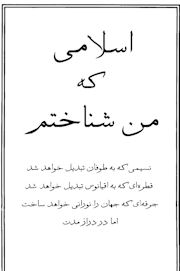 اسلامی
که
من شناختم
نسیمی که به طوفان تبدیل خواهد شد
قطره‌ای که به اقیانوس تبدیل خواهد شد
جرقه‌ای که جهان را نورانی خواهد ساخت
اما در دراز مدت